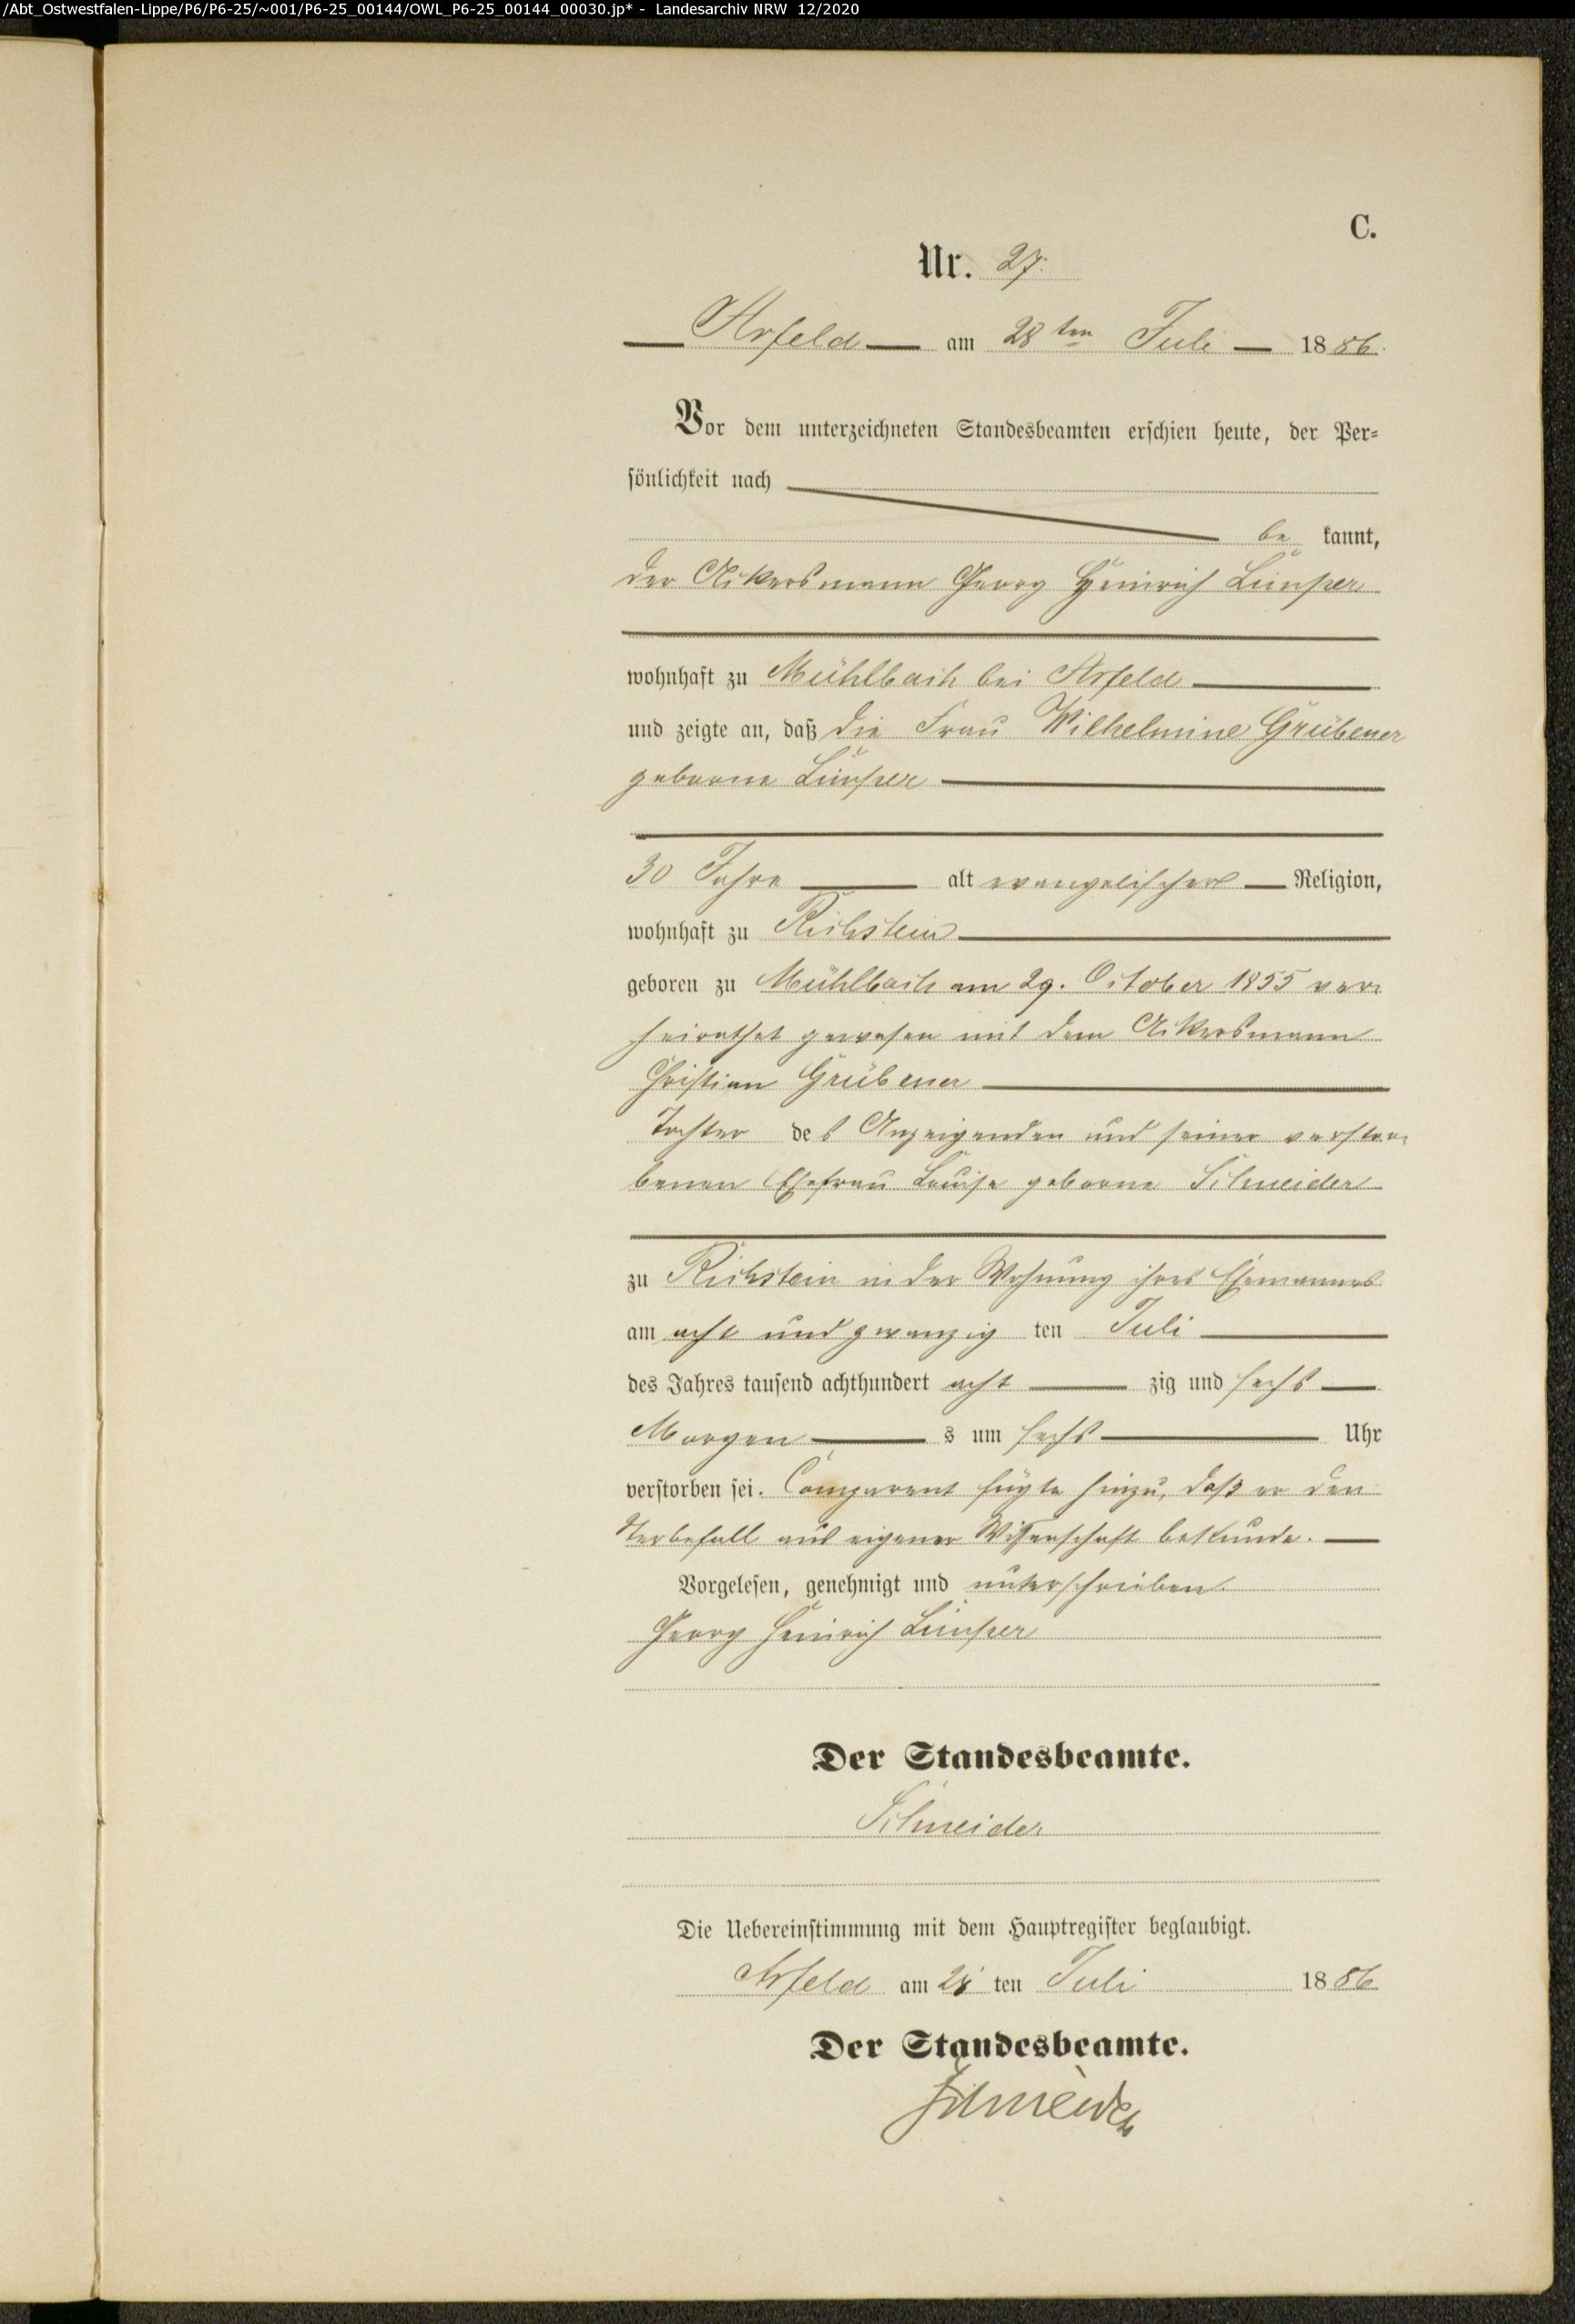 /Abt_Ostwestfalen-Lippe/P6/P6-25/~001/P6-25_00144/OWL_P6-25_00144_00030.jp* - Landesarchiv NRW 12/2020
C.
Nr. 27.
Arfeld am 28ten Juli 1886.
Vor dem unterzeichneten Standesbeamten erschien heute, der Per-
sönlichkeit nach
be kannt,
der Ackersmann Georg Heinrich
wohnhaft zu Mühlbach bei Arfeld
und zeigte an, daß die Frau Wilhelmine Grübener
geborne
30 Jahre alt evangelischer Religion,
wohnhaft zu Richstein
geboren zu Mühlbach am 29. October 1855 ver-
heirathet gewesen mit dem Ackersmann
Christian Grübener
Tochter des Anzeigenden und seiner verstor-
benen Ehefrau Louise geborne Schneider
zu Richstein in der Wohnung ihres Ehemannes
am acht und zwanzig ten Juli
des Jahres tausend achthundert acht zig und sechs
Morgen s um sechs Uhr
verstorben sei. Comparent fügte hinzu, daß er den
Sterbefall aus eigener Wissenschaft bekunde.
Vorgelesen, genehmigt und unterschrieben.
Georg Heinrich
Der Standesbeamte.
Schneider
Die Uebereinstimmung mit dem Hauptregister beglaubigt.
Arfeld am 28 ten Juli 1886
Der Standesbeamte.
Schneider